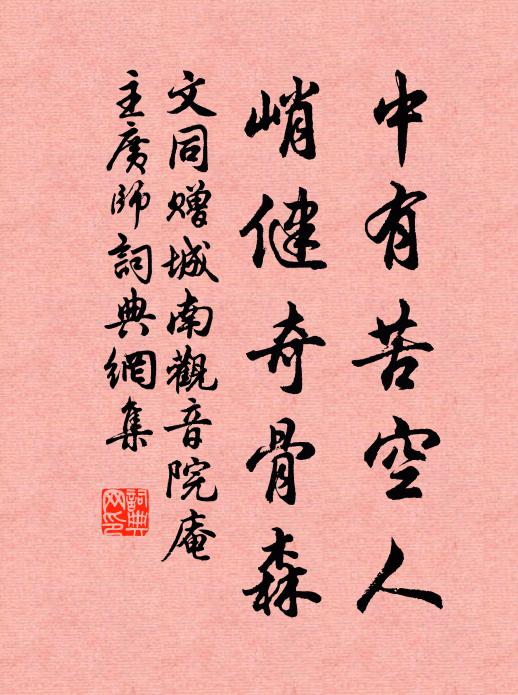 中有苦空人
峭健奇骨森
文同赠城南觀音院庵
主廣师詞典網集
詞典
网印